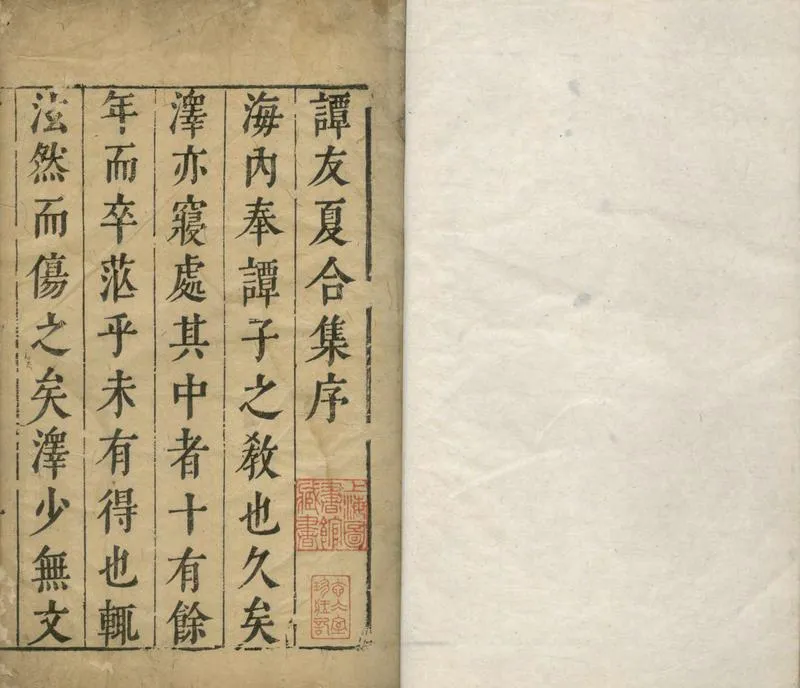 譚友夏合集序
上海圖書館藏書
海內奉譚子之教也久矣
澤亦寢處其中者十有餘
年而卒茫乎未有得也輒
泫然而傷之矣澤少無文